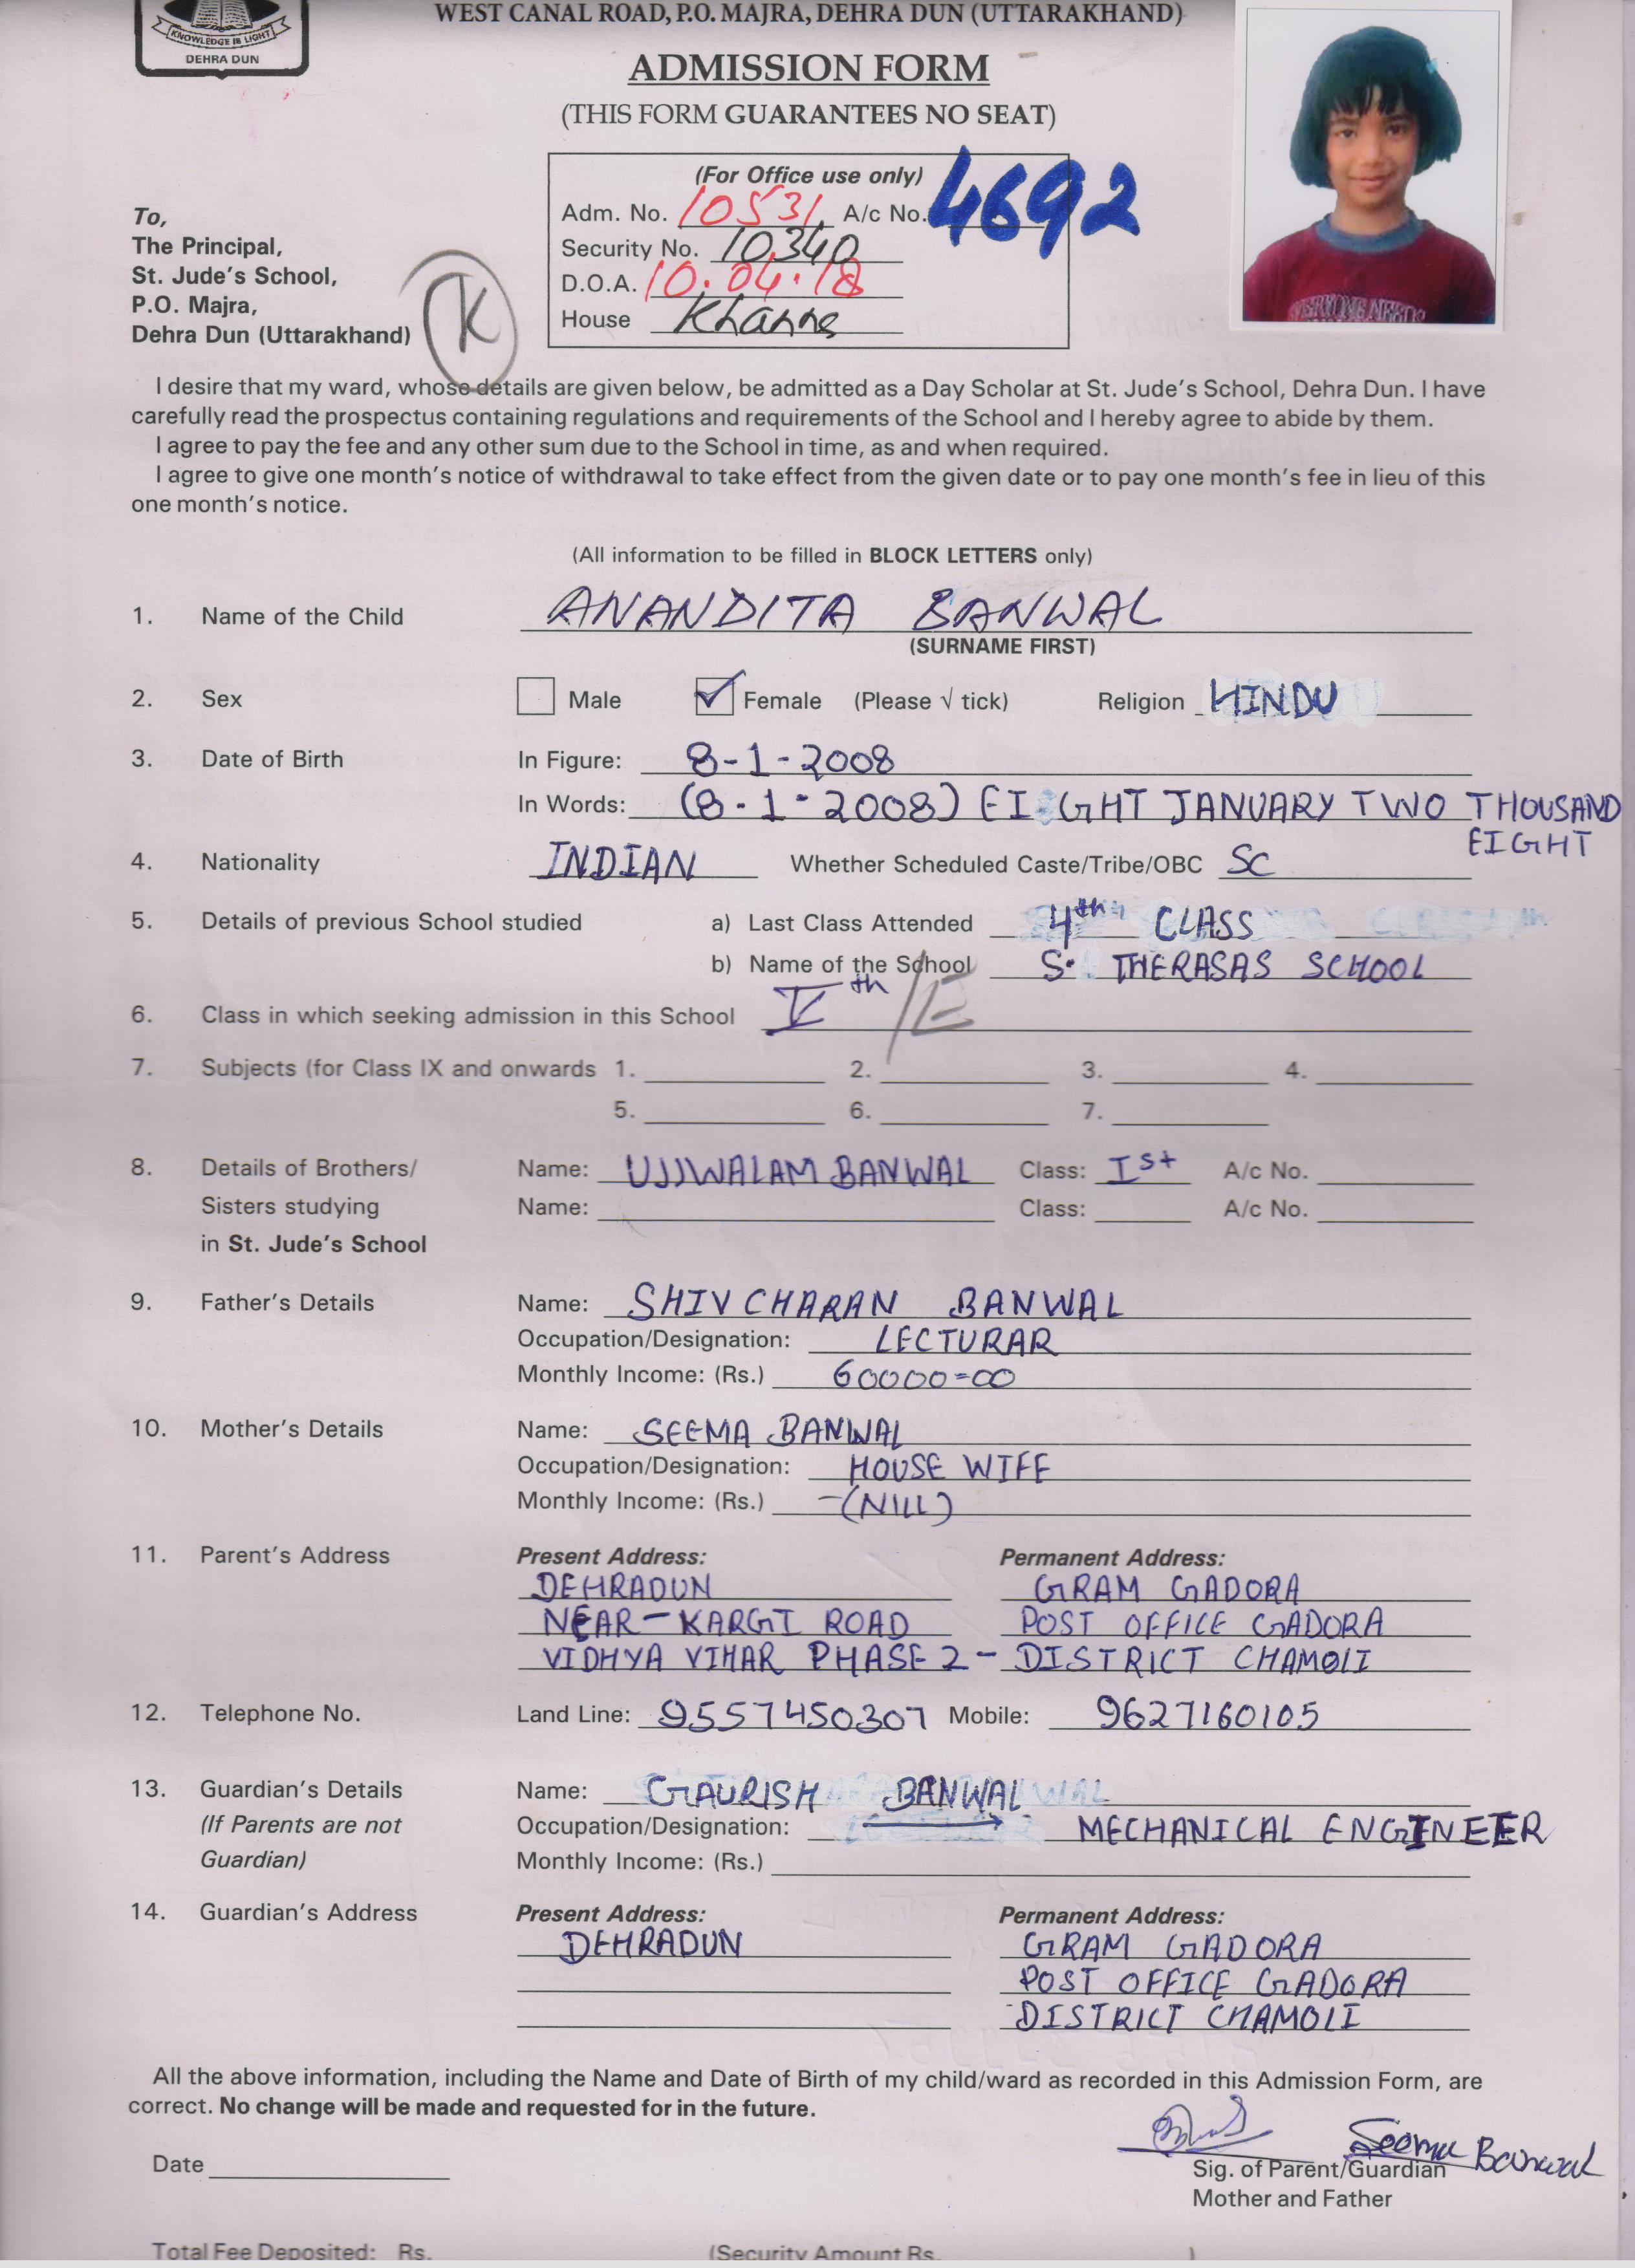 WEST CANAL ROAD, P.O. MAJRA, DEHRA DUN (UTTARAKHAND)
KNOWLEDGE IS LIGHT
DEHRA DUN
ADMISSION FORM
(THIS FORM GUARANTEES NO SEAT)
(For Office use only)
Adm. No. 10531 A/c No. 4692
Security No. 10340
D.O.A. 10.04.18
House Khanna
To,
The Principal,
St. Jude's School,
P.O. Majra,
Dehra Dun (Uttarakhand)
K
I desire that my ward, whose details are given below, be admitted as a Day Scholar at St. Jude's School, Dehra Dun. I have
carefully read the prospectus containing regulations and requirements of the School and I hereby agree to abide by them.
I agree to pay the fee and any other sum due to the School in time, as and when required.
I agree to give one month's notice of withdrawal to take effect from the given date or to pay one month's fee in lieu of this
one month's notice.
(All information to be filled in BLOCK LETTERS only)
1. Name of the Child ANANDITA BANWAL
(SURNAME FIRST)
2. Sex Male Female (Please √ tick) Religion HINDU
3. Date of Birth In Figure: 8-1-2008
In Words: (8-1-2008) EIGHT JANUARY TWO THOUSAND
EIGHT
4. Nationality INDIAN Whether Scheduled Caste/Tribe/OBC SC
5. Details of previous School studied a) Last Class Attended 4th CLASS
b) Name of the School S. THERASAS SCHOOL
6. Class in which seeking admission in this School Vth /E
7. Subjects (for Class IX and onwards 1. 2. 3. 4.
5. 6. 7.
8. Details of Brothers/ Name: UJJWALAM BANWAL Class: Ist A/c No.
Sisters studying Name: Class: A/c No.
in St. Jude's School
9. Father's Details Name: SHIV CHARAN BANWAL
Occupation/Designation: LECTURAR
Monthly Income: (Rs.) 60000=00
10. Mother's Details Name: SEEMA BANWAL
Occupation/Designation: HOUSE WIFE
Monthly Income: (Rs.) -(NILL)
11. Parent's Address Present Address: Permanent Address:
DEHRADUN GRAM GADORA
NEAR-KARGI ROAD POST OFFICE GADORA
VIDHYA VIHAR PHASE 2 - DISTRICT CHAMOLI
12. Telephone No. Land Line: 9557450307 Mobile: 9627160105
13. Guardian's Details Name: GAURISH BANWAL
(If Parents are not Occupation/Designation: MECHANICAL ENGINEER
Guardian) Monthly Income: (Rs.)
14. Guardian's Address Present Address: Permanent Address:
DEHRADUN GRAM GADORA
POST OFFICE GADORA
DISTRICT CHAMOLI
All the above information, including the Name and Date of Birth of my child/ward as recorded in this Admission Form, are
correct. No change will be made and requested for in the future.
Seema Banwal
Date Sig. of Parent/Guardian
Mother and Father
Total Fee Deposited: Rs. (Security Amount Rs. )